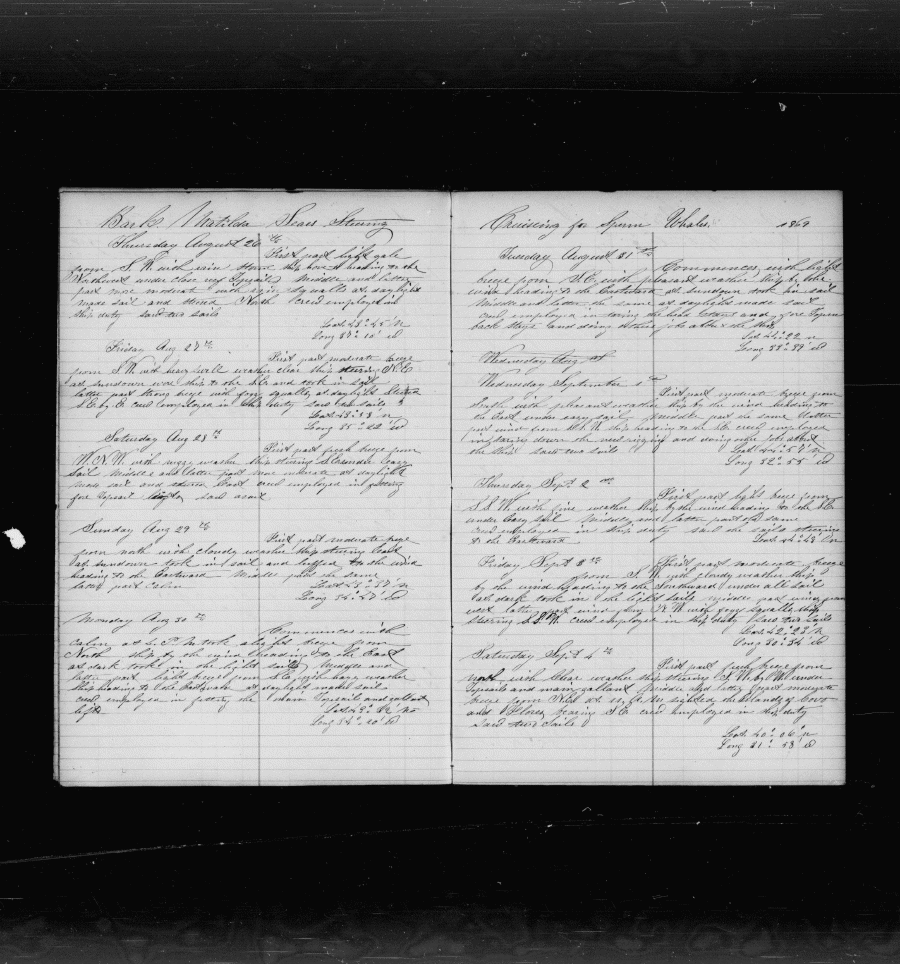 Bark Matilda Sears Strurng
Thursday August 26th
First part light gale
from S.W. with rain ship hove to heading to the
Westward under close reef topsails Middle and latter
part more moderate with squalls at daylight
made sail and stered North Crew employed in
ship duty saw two sails
Lat 43° 45' N
Long 37° 10' W
Friday Aug 27th
First part moderate breeze
from S.W. with heavy swell weather clear ship stering S.E.
at sundown wore ship to the and took in sail
latter part strong breeze with fog squalls at daylight stered
S.E. by E. crew employed in ship duty saw two sails
Lat 43° 38' N
Long 35° 22' W
Saturday Aug 28th
First part fresh breeze from
W.N.W. with weather ship stering under easy
sail Middle and latter part more moderate at daylight
made sail and stered East crew employed in
for topsail saw a sail
Sunday Aug 29th
First part moderate breze
from north with cloudy weather ship stering East
at sundown took in sail and luffed to the wind
heading to the Eastward Middle part the same
latter part calm
Long 34° W
Monday Aug 30th
Commences with
calm at 2 P.M. took a light breeze from
North ship by the wind heading to the East
at dark took in the light sails Middle and
latter part light breeze from with weather
ship heading to the Eastward at daylight made sail
crew employed in fitting the main topsail and
lifts
Long 34° 20' W
Cruising for Sperm Whales. 1869
Tuesday August 31th
Commences with light
breeze from S.E. with pleasant weather ship by the
wind heading to the Eastward at sundown took in sail
Middle and latter the same at daylight made sail
crew employed in taring the head stays and fore topmast
back stays and doing other jobs about the ship
Lat 44° 22 N
Long 33° 39' W
Wednesday Aug
Wednesday September 1th
First part moderate breeze from
South with pleasant weather ship by the wind heading to
the East under easy sail Middle part the same latter
part wind from ship heading to the S.E. crew employed
in taring down the rigging and doing other jobs about
the ship saw two sails
Long 32° 55' W
Thursday Sept 2nd
First part light breeze from
S.S.W. with fine weather ship by the wind heading to the S.E.
under easy sail Middle and latter part the same
crew employed in ship duty saw six sails stering
to the Eastward
Lat 44° 43' N
Friday Sept 3rd
First part moderate breeze
from S.W. with cloudy weather ship
by the wind heading to the Southward under all sail
at dark took in the light sails middle part wind from
west latter part wind from N.W. with foggy squalls ship
stering S.S.W. crew employed in ship duty saw two sails
Lat 42° 23' N
Long 30° 34' W
Saturday Sept 4th
First part fresh breeze from
North with clear weather ship stering S.W. by W. under
topsails and main gallant Middle and latter part moderate
breeze from at 10 A.M. sighted the islands of Corvo
and Flores bearing S.E. crew employed in ship duty
saw two sails
Lat 40° 06' N
Long 31° 53' W